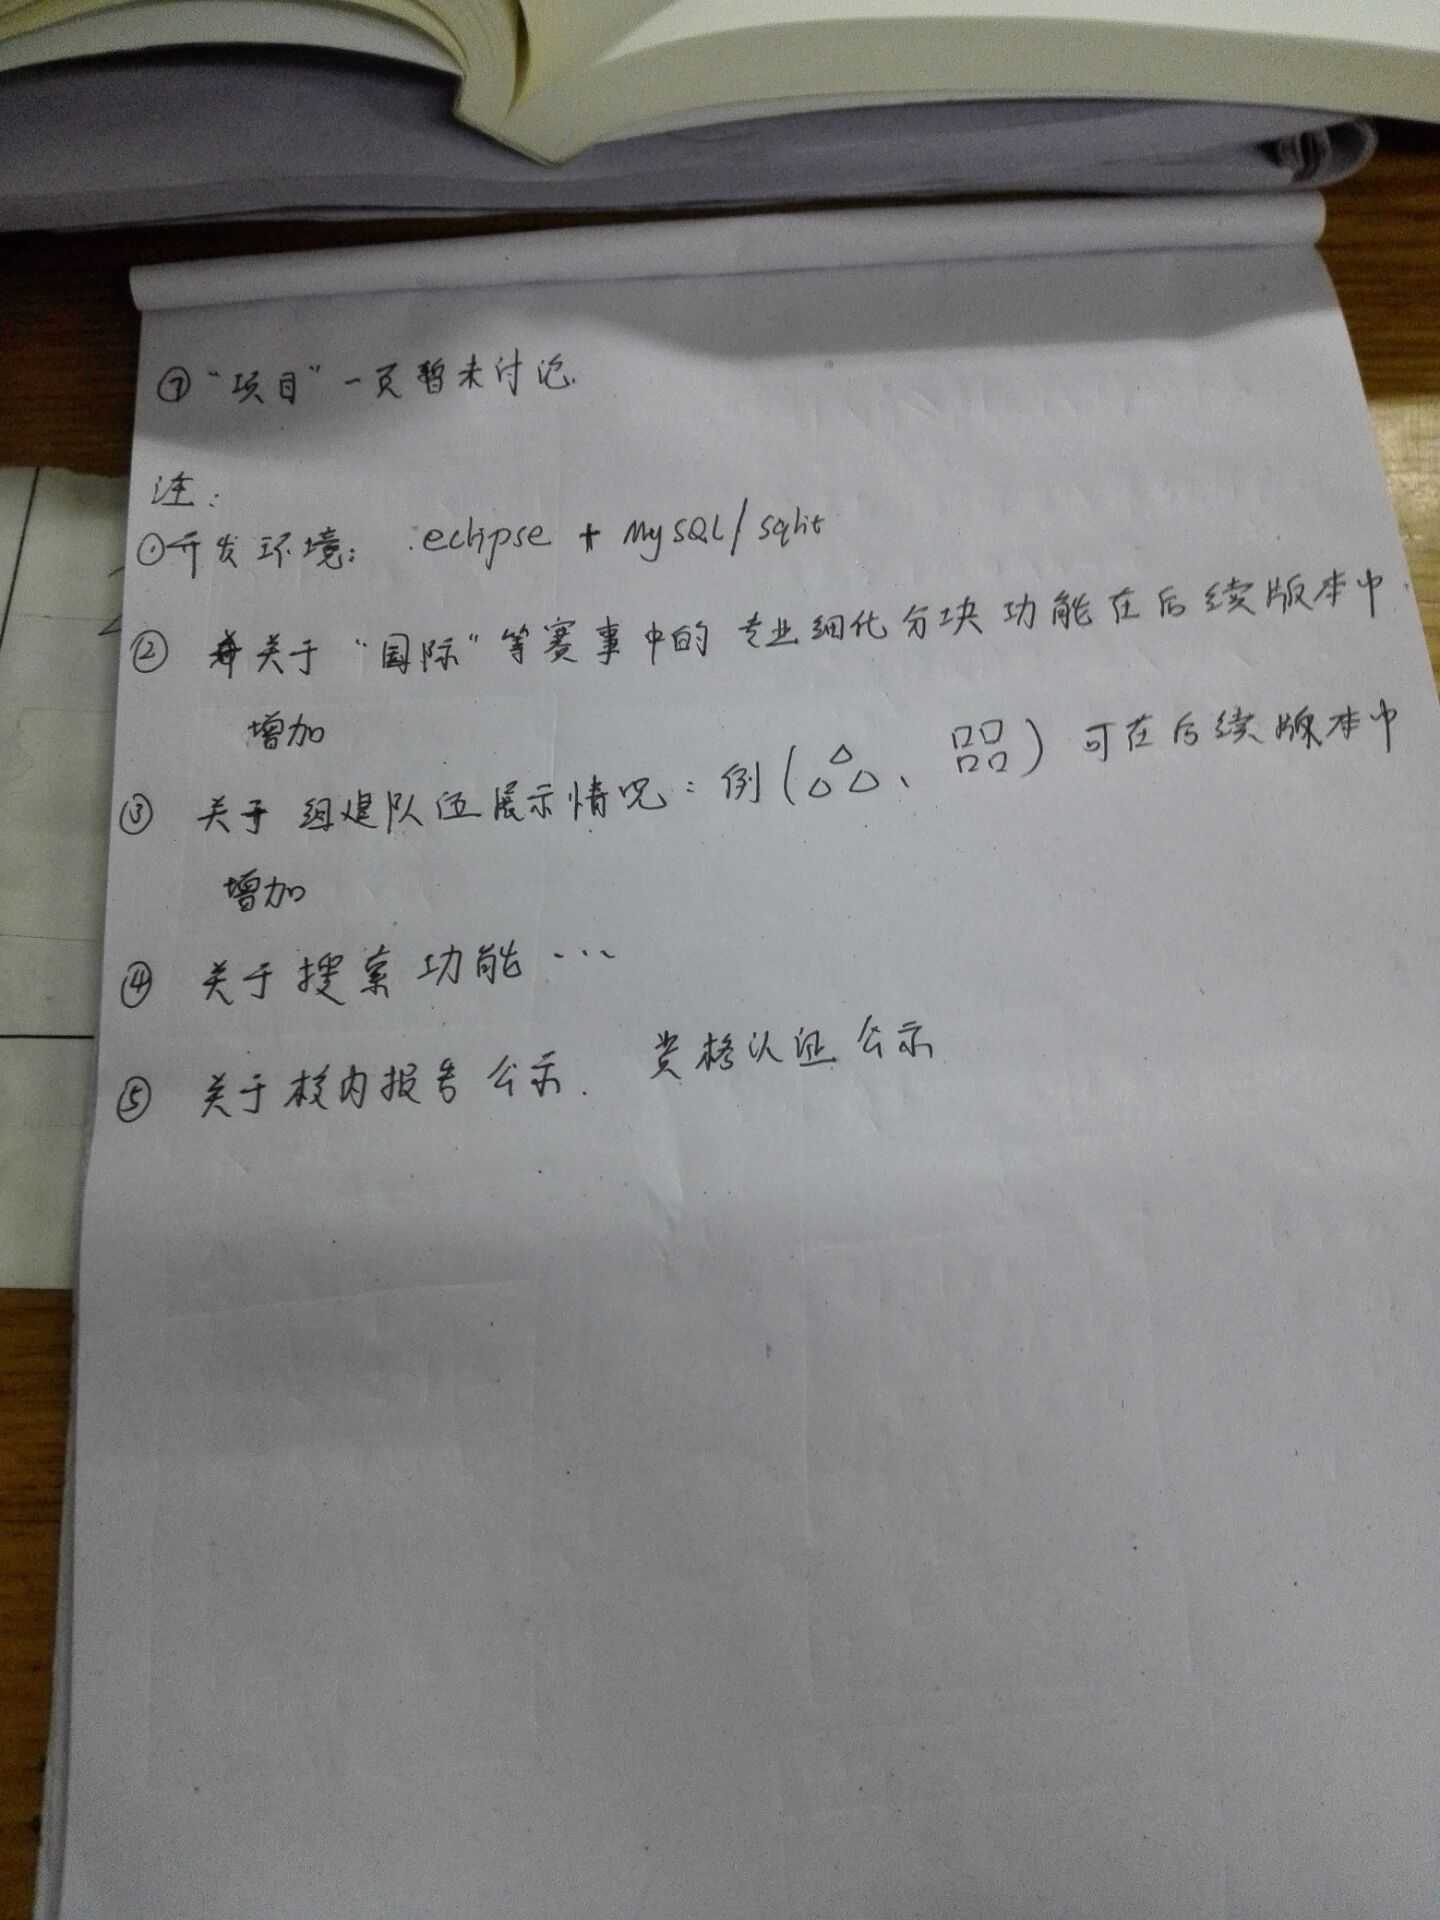 ⑦“项目”一页暂未讨论.
注:
①开发环境: eclipse + MySQL/sqlit
② 关于“国际”等赛事中的专业细化分块功能在后续版本中
增加
③ 关于组建队伍展示情况: 例(△△△、口口口口)可在后续版本中
增加
④ 关于搜索功能…
⑤ 关于校内报告公示. 资格认证公示